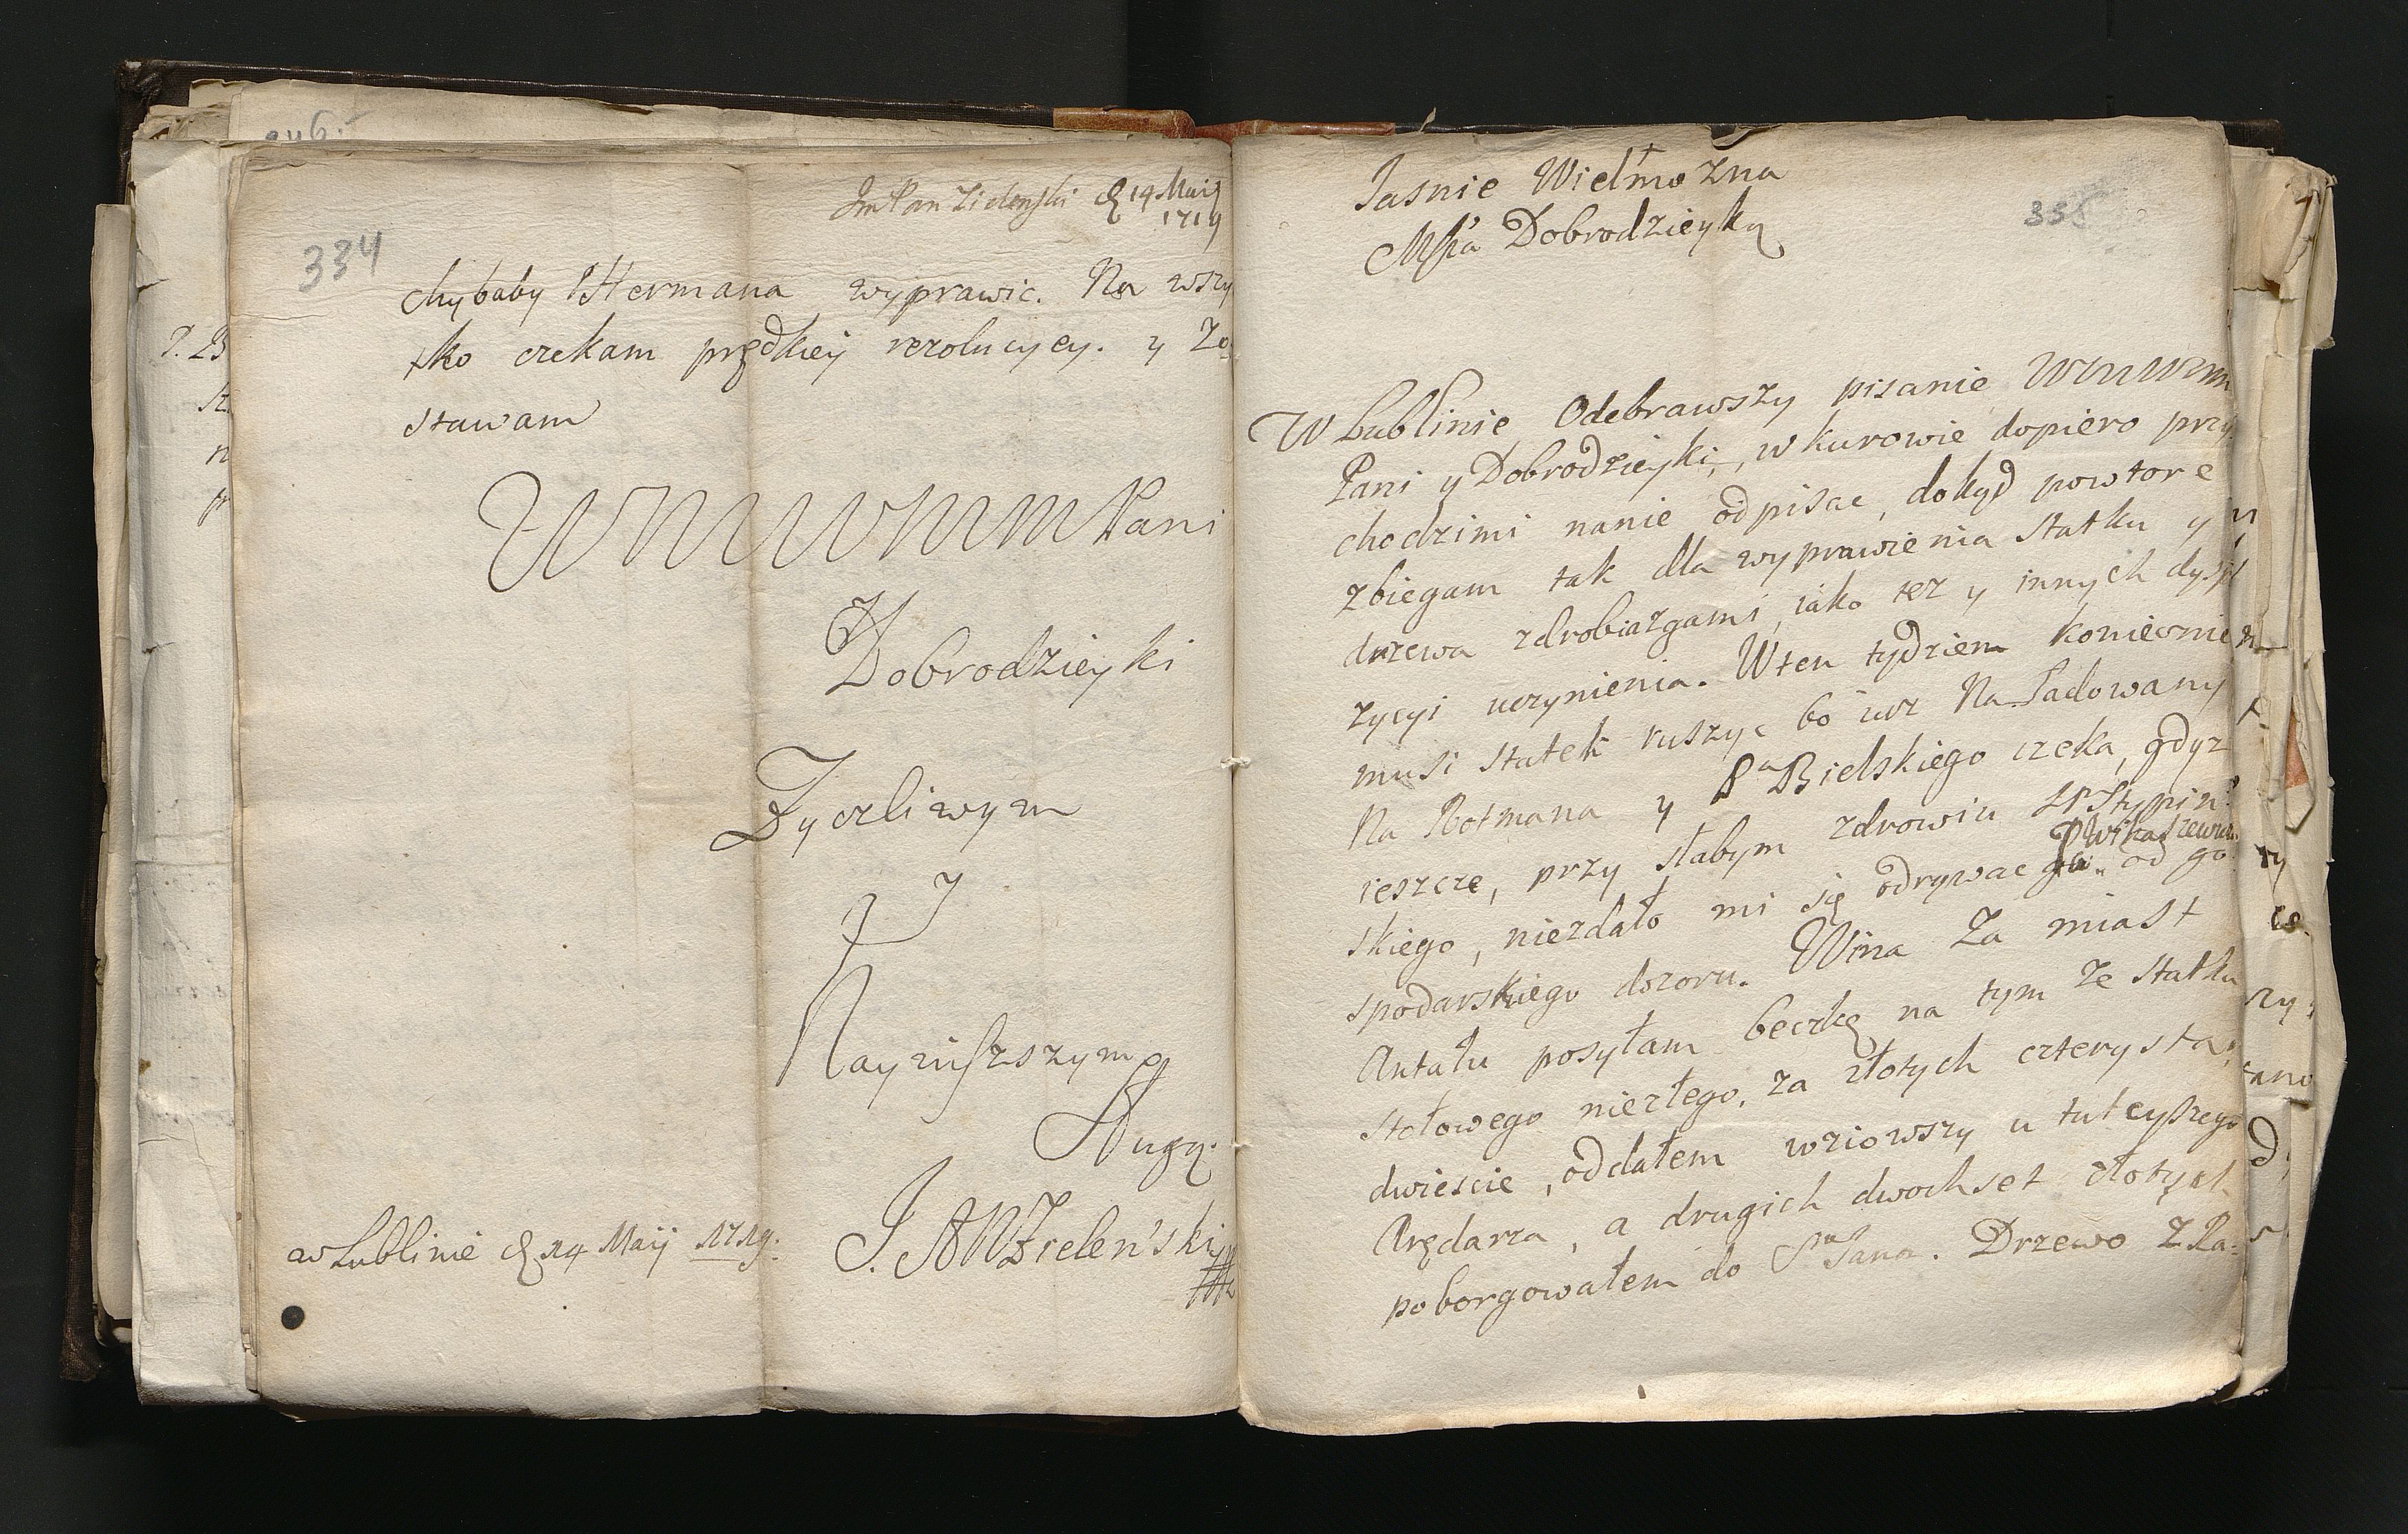 246.
334
Im Pan Zielenski d 14 Maij
1719
chybaby P Hermana wyprawic. Na wszy
tko czekam prędkiey rezolucyey. y Zo
stawam
WMWMM Pani
Dobrodzieyki
Zyczliwym
y
Nayniszszym
Sługą.
J. A W Zieleński
w Lublinie d 14 Maij 1719.
Jasnie Wielmozna
Mscia Dobrodzieyką
335
W Lublinie Odebrawszy pisanie WMWMM
Pani y Dobrodzieyki, w Kurowie dopiero przy
chodzi mi nanie odpisac, dokąd powtore
zbiegam tak dla wyprawienia statku y
drzewa zdrobiazgami, iako tez y innych dyspo
zycyi uczynienia. W ten tydzien koniecznie
musi statek ruszyc bo iuz Naładowany
Na Rotmana y Pa Bielskiego czeka, gdyz
ieszcze, przy słabym zdrowiu JP Stypin
skiego, niezdało mi się odrywac od go
spodarskiego dozoru. Wina Za miast
Antału posyłam beczkę na tym ze statku
stołowego niezłego, za złotych czterysta,
dwiescie, oddałem wziowszy u tuteyszego
Arędarza, a drugich dwochset złotych
poborgowałem do Sw Jana. Drzewo Z Ra-